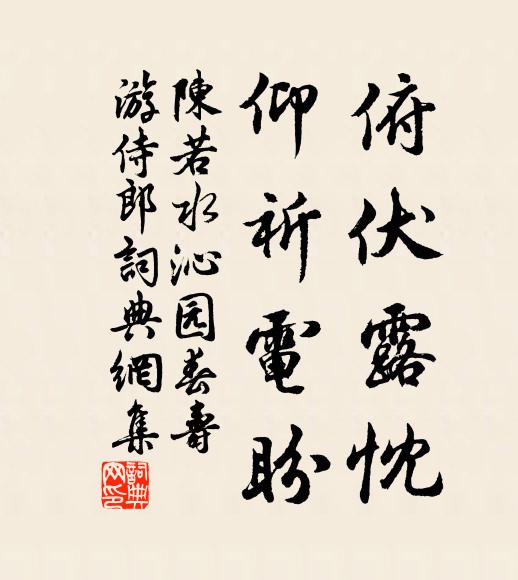 俯伏露忱
仰祈電盼
陳若水沁园春壽
游侍郎詞典網集
詞典网印